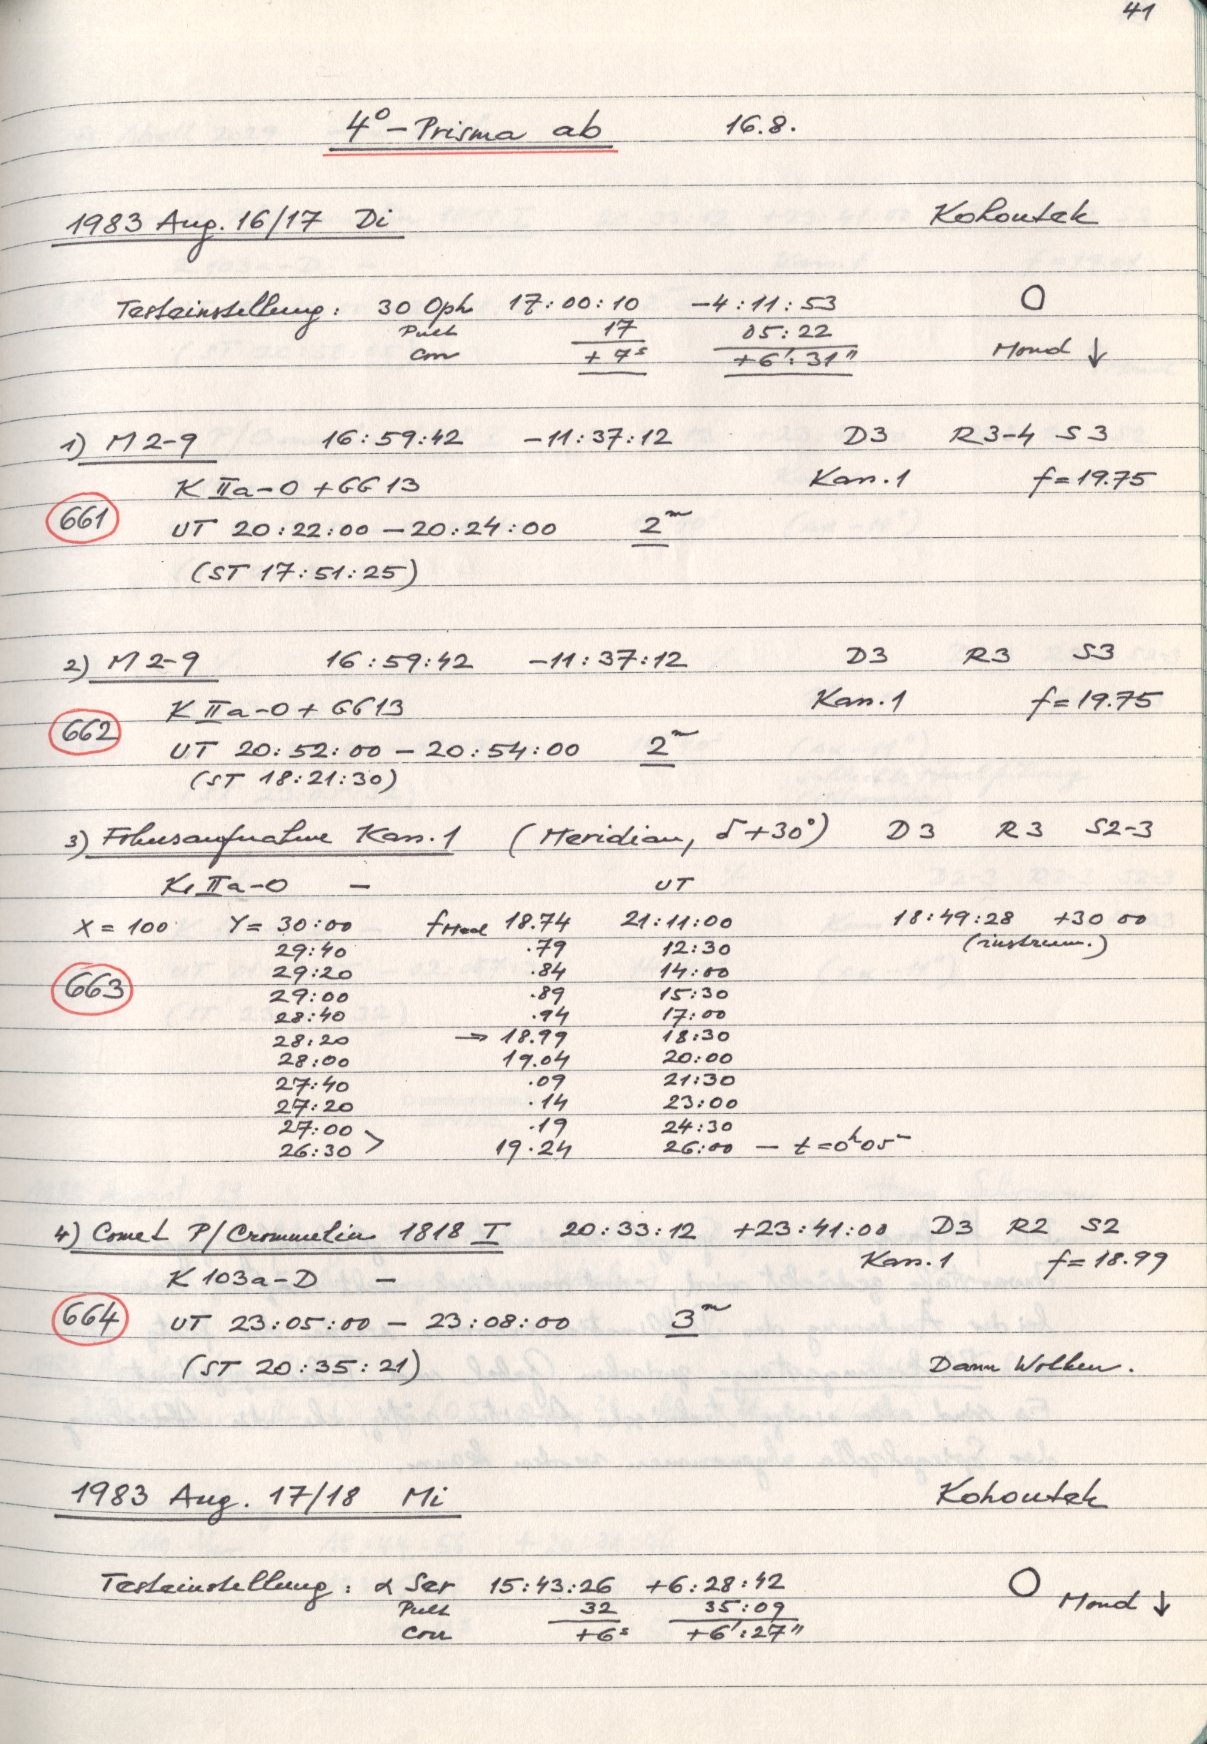 41
4° - Prisma ab 16.8.
1983 Aug. 16/17 Di Kohoutek
Testeinstellung: 30 Oph 17:00:10 -4:11:53 O
Pult 17 05:22
Corr +7s +6':31" Mond ↓
1) M2-9 16:59:42 -11:37:12 D3 R3-4 S3
K IIa-O + GG13 Kas.1 f=19.75
661
UT 20:22:00 - 20:24:00 2m
(ST 17:51:25)
2) M2-9 16:59:42 -11:37:12 D3 R3 S3
K IIa-O + GG13 Kas.1 f=19.75
662
UT 20:52:00 - 20:54:00 2m
(ST 18:21:30)
3) Fokusaufnahme Kas.1 (Meridian, δ+30°) D3 R3 S2-3
K IIa-O - UT
X=100 Y= 30:00 18.74 21:11:00 18:49:28 +30 00
29:40 .79 12:30 (instrum.)
29:20 .84 14:00
663 29:00 .89 15:30
28:40 .94 17:00
28:20 → 18.99 18:30
28:00 19.04 20:00
27:40 .09 21:30
27:20 .14 23:00
27:00 .19 24:30
26:30 > 19.24 26:00 - t=0h05m
4) Comet P/Crommelin 1818 I 20:33:12 +23:41:00 D3 R2 S2
Kas.1 f=18.99
K 103a-D -
664 UT 23:05:00 - 23:08:00 3m
(ST 20:35:21) Dann Wolken.
1983 Aug. 17/18 Mi Kohoutek
Testeinstellung: α Ser 15:43:26 +6:28:42 O
Pult 32 35:09 Mond ↓
Corr +6s +6':27"